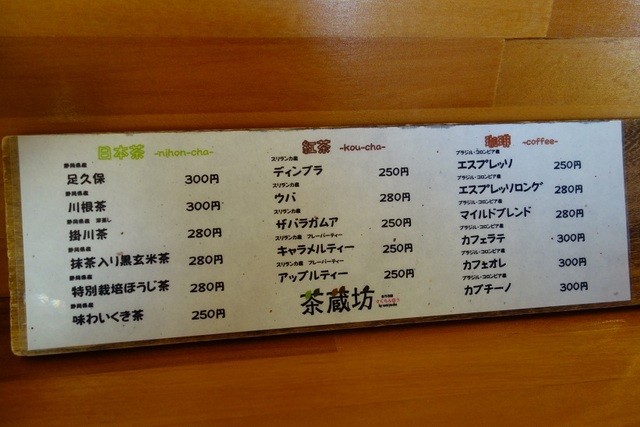 日本茶 -nihon-cha-
静岡県産
足久保 300円
静岡県産
川根茶 300円
静岡県産 深蒸し
掛川茶 280円
静岡県産
抹茶入り黒玄米茶 280円
静岡県産
特別栽培ほうじ茶 280円
静岡県産
味わいくき茶 250円
紅茶 -kou-cha-
スリランカ産
ディンブラ 250円
スリランカ産
ウバ 280円
スリランカ産
ザバラガムア 250円
スリランカ産 フレーバーティー
キャラメルティー 250円
スリランカ産 フレーバーティー
アップルティー 250円
茶蔵坊
珈琲 -coffee-
ブラジル・コロンビア産
エスプレッソ 250円
ブラジル・コロンビア産
エスプレッソロング 280円
ブラジル・コロンビア産
マイルドブレンド 280円
ブラジル・コロンビア産
カフェラテ 300円
ブラジル・コロンビア産
カフェオレ 300円
ブラジル・コロンビア産
カプチーノ 300円